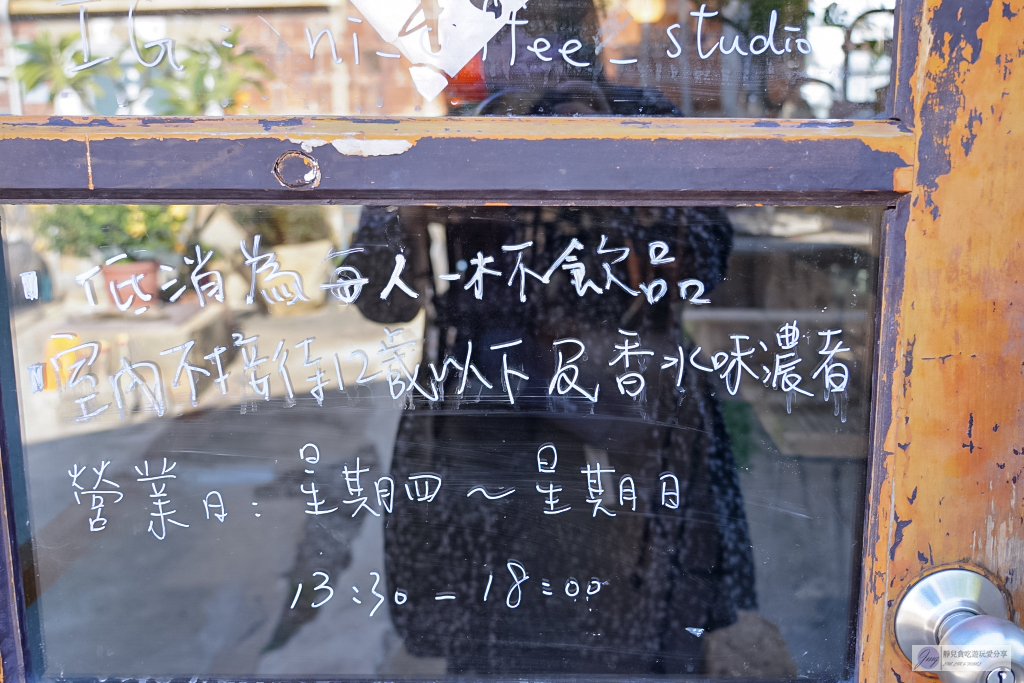 IG: ni_coffee_studio
低消為每人一杯飲品
室內不接待12歲以下及香水味濃者
營業日:星期四～星期日
13:30-18:00
靜兒貪吃遊玩愛分享